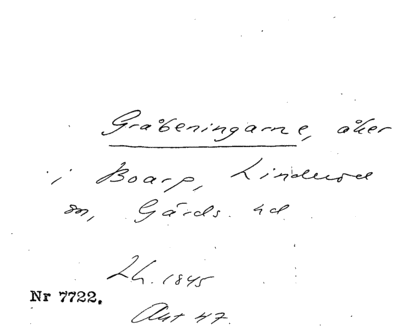 Gråbeningarne, åker
i Boarp, Linderöd
sn, Gärds hd
Lh. 1845
Nr 7722.
Akt 47